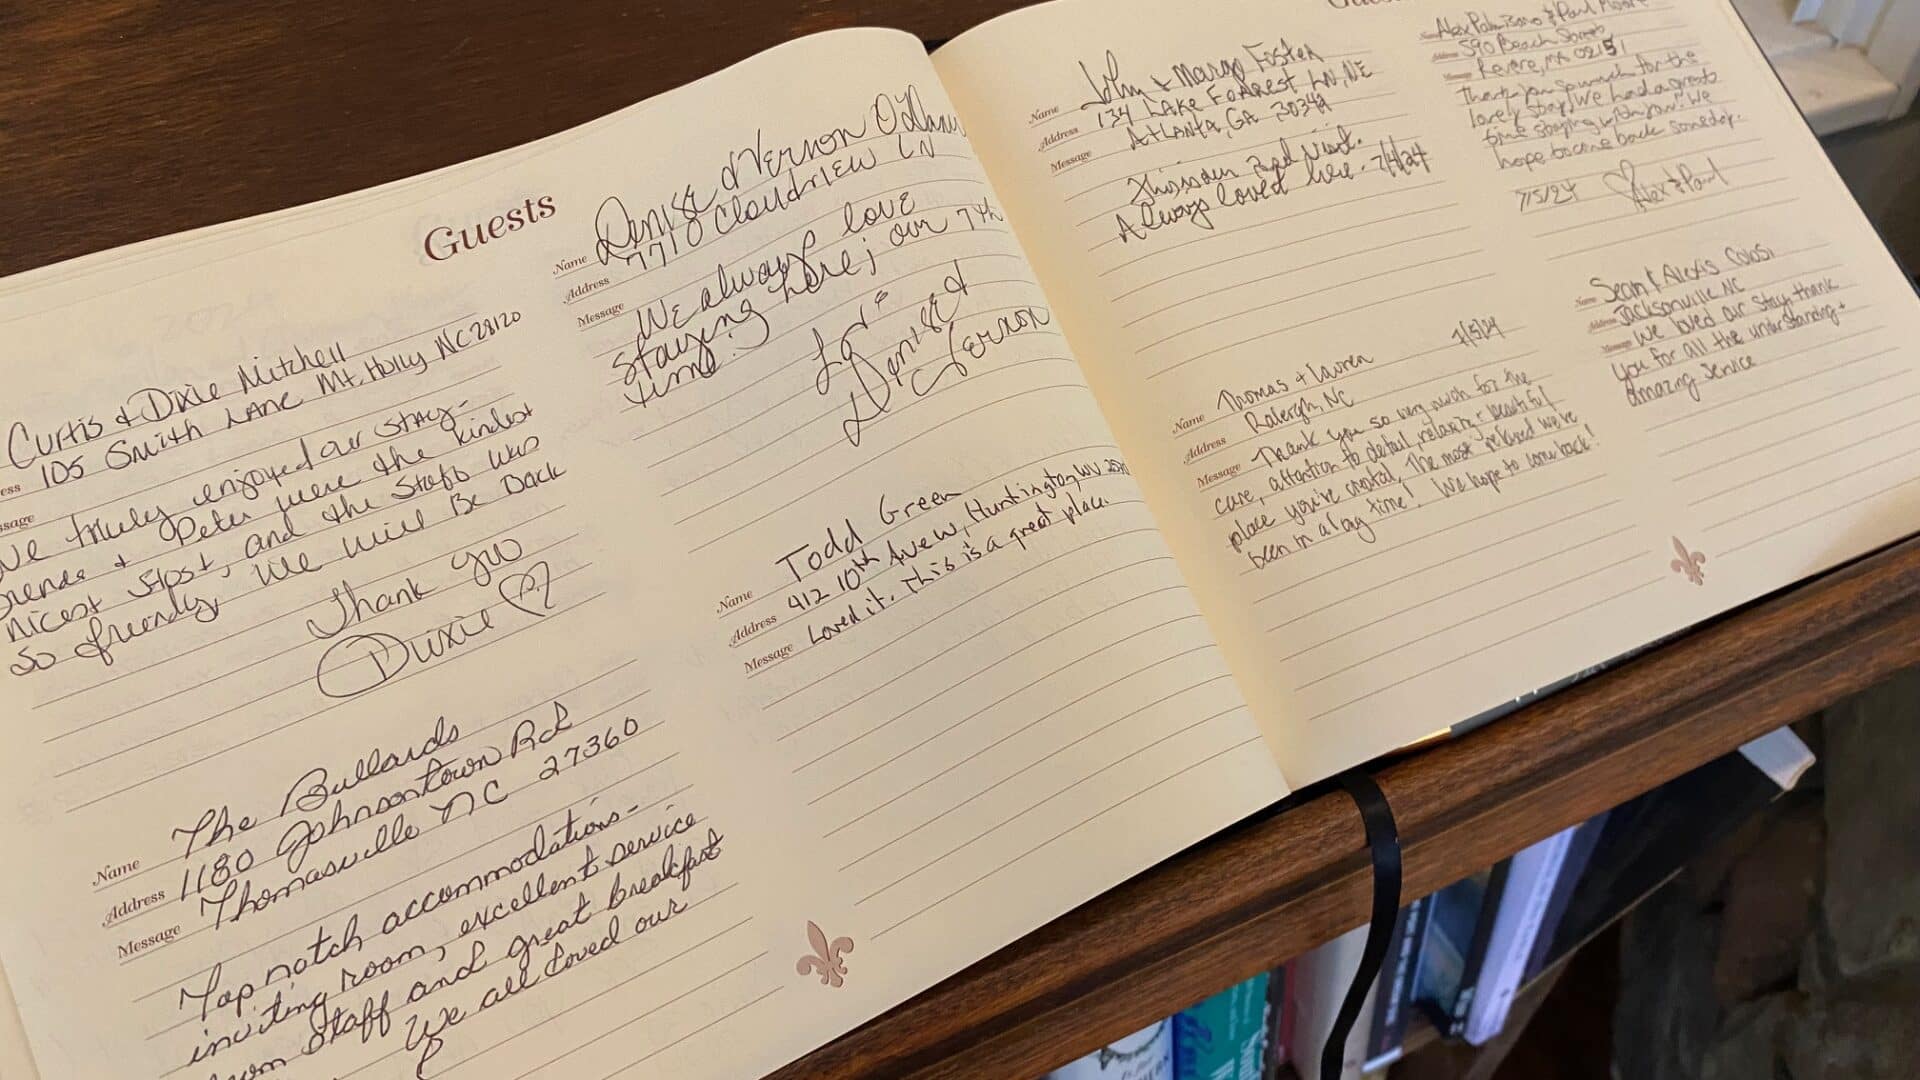 Guests
Curtis & Dixie Mitchell
105 Smith Lane Mt. Holly NC 28120
We truly enjoyed our stay-
& Peter were the kindest
nicest and the Staff was
so friendly, We will Be Back
Thank you
Dixie
Name The Bullards
Address 1180 Johnsontown Rd
Message Thomasville NC 27360
Top notch accommodations-
inviting room, excellent service
from staff and great breakfast
We all loved our
Name Denise & Vernon
Address 7710 Cloudview LN
Message We always love
staying here; our 7th
time!
Love
Denise &
Vernon
Name Todd Green
Address 412 10th Ave W, Huntington WV
Message Loved it. This is a great place.
Name John & Margo Foster
Address 134 Lake Forrest LN, NE
Message Atlanta, GA 30342
This is our 2nd visit.
Always loved here. 7/4/24
Name Thomas + Lauren 7/5/24
Address Raleigh, NC
Message Thank you so very much for the
care, attention to detail, relaxing + beautiful
place you've created. The most relaxed we've
been in a long time! We hope to come back!
Name Alex & Paul Moore
Address 590 Beach Street
Message Revere, MA 02151
Thank you so much for the
lovely stay, we had a great
time staying with you. We
hope to come back someday.
7/5/24 Alex & Paul
Name Sean & Alexis Colosi
Address Jacksonville NC
Message We loved our stay, thank
you for all the understanding +
amazing service